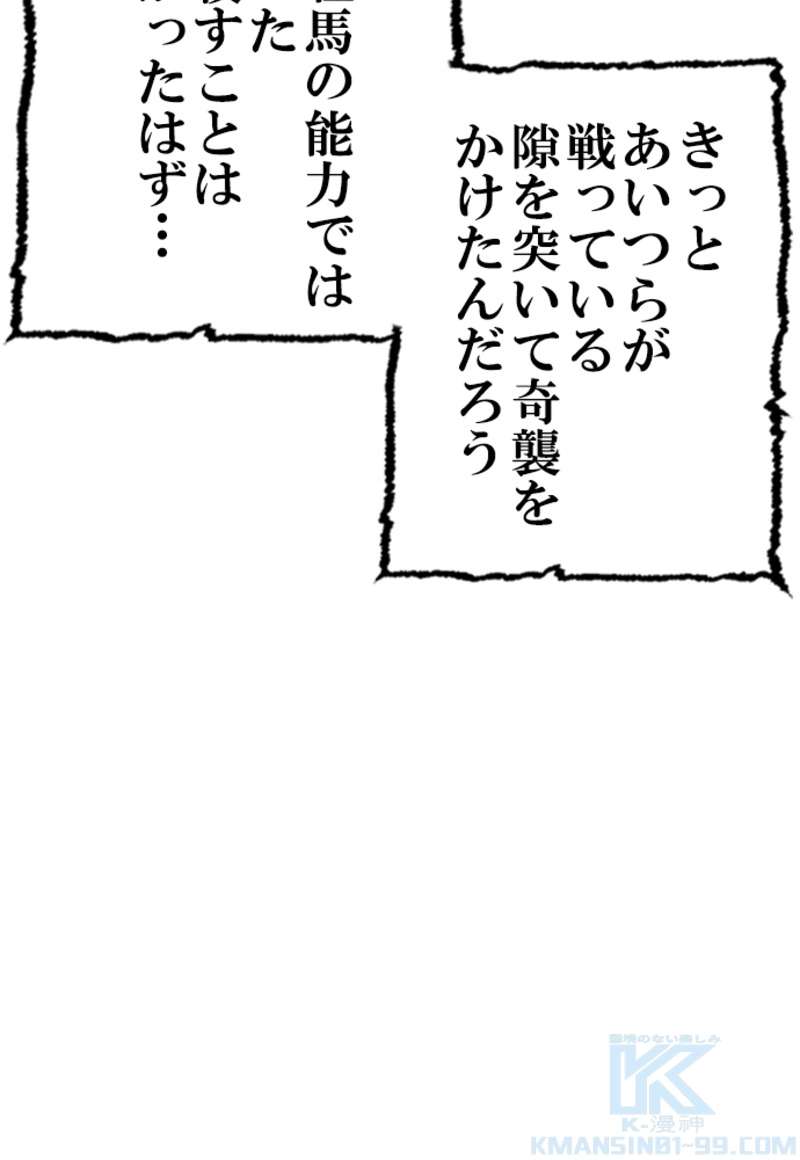 きっと
あいつらが
戦っている
隙を突いて奇襲を
かけたんだろう
馬の能力では
た
すことは
ったはず…
K-漫神
KMANSIN01-99.COM